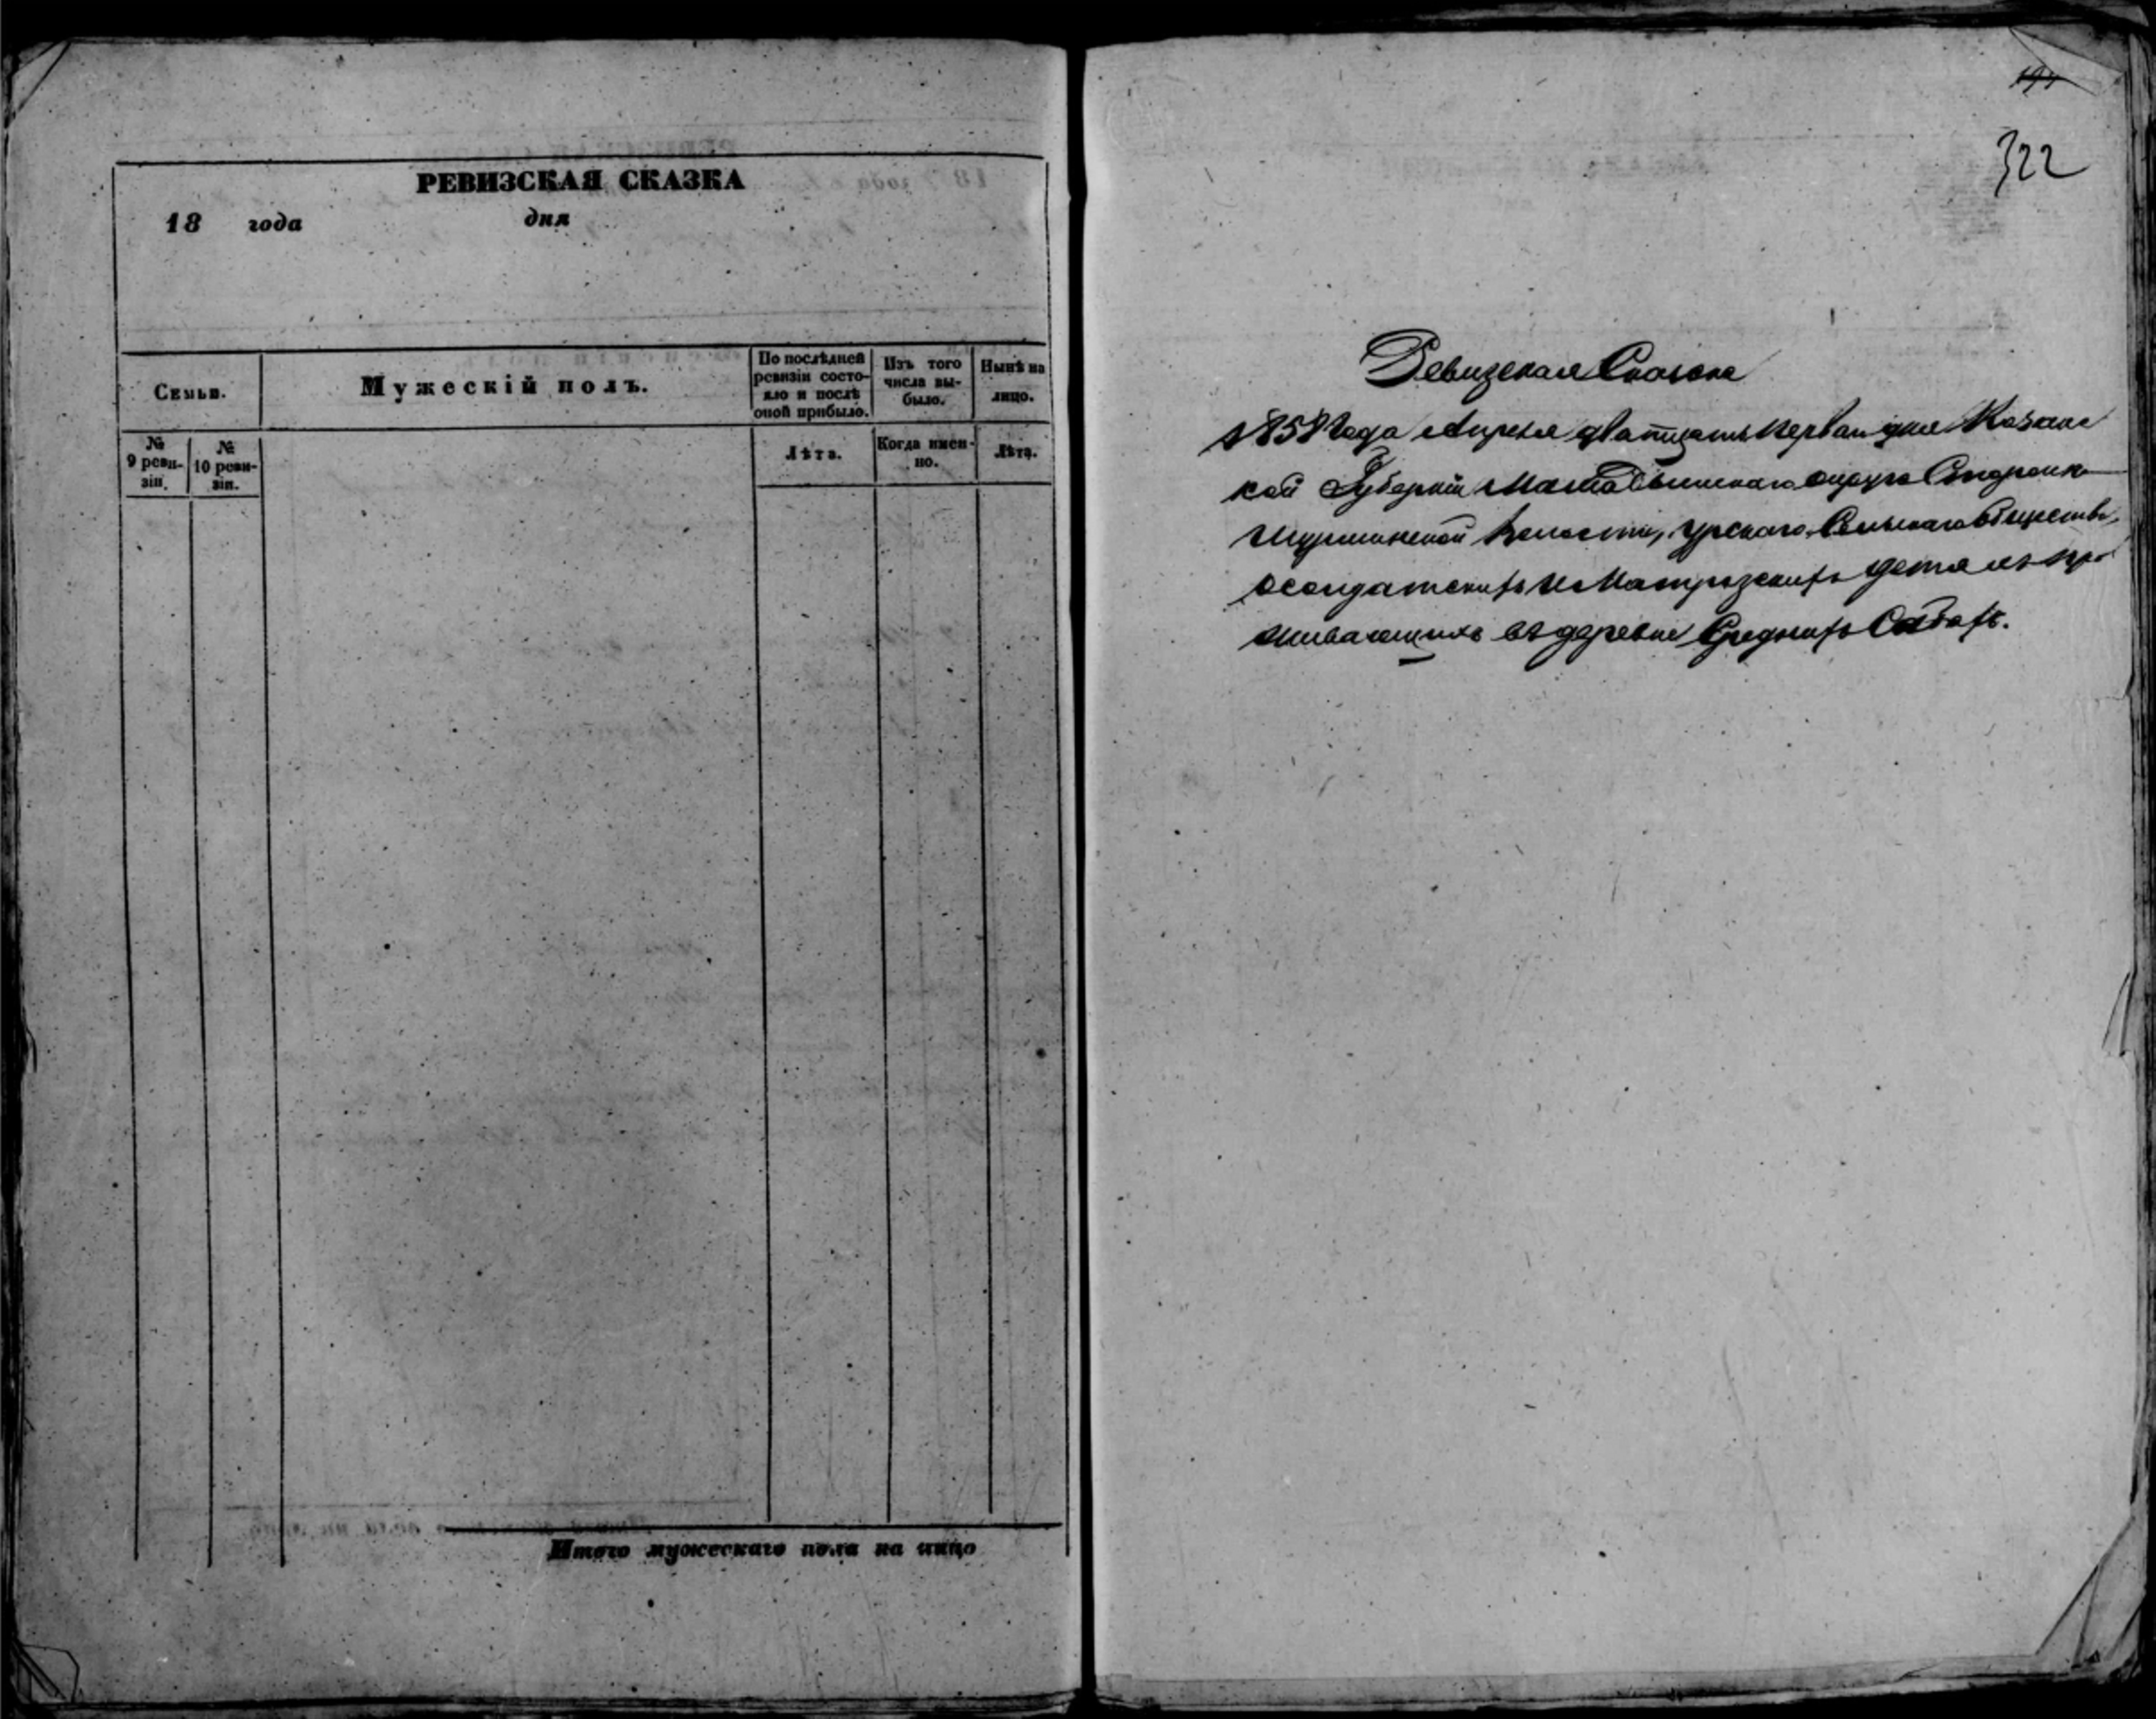 РЕВИЗСКАЯ СКАЗКА
18 года дня
Семьи.
Мужескій полъ.
По послѣдней
ревизіи состо-
яло и послѣ
оной прибыло.
Изъ того
числа вы-
было.
Нынѣ на
лицо.
№
9 реви-
зіи.
№
10 реви-
зіи.
Лѣта.
Когда имен-
но.
Лѣта.
Итого мужескаго пола на лицо
322
Ревизская Сказка
1858 года Апреля дватцать перваго дня Казанс
кой Губерніи Мамадышскаго округа Старойк
Шурминской Волости, Урскаго Сельскаго общества,
осолдатскихъ и Матрозскихъ детяхъ про
живающихъ въ деревне Среднихъ Сабахъ.